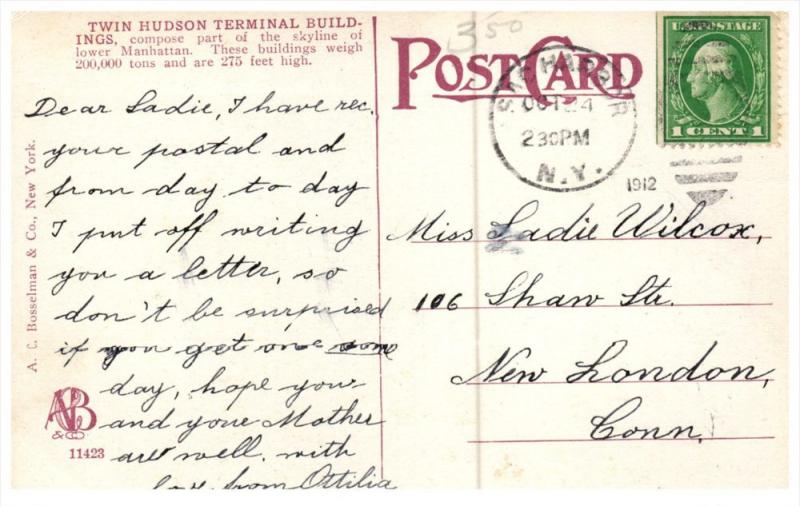 TWIN HUDSON TERMINAL BUILD-
INGS, compose part of the skyline of
lower Manhattan. These buildings weigh
200,000 tons and are 275 feet high.
POST CARD
350
SAG HARBOR
OCT 24
2 30PM
N.Y.
1912
U.S. POSTAGE
1 CENT 1
Dear Sadie, I have rec.
your postal and
from day to day
I put off writing
you a letter, so
don't be surprised
if you get one some
day, hope your
and your Mother
are well. with
love from Ottilia
Miss Sadie Wilcox,
106 Shaw Str.
New London,
Conn.
A. C. Bosselman & Co., New York.
ACB
& CO
11423